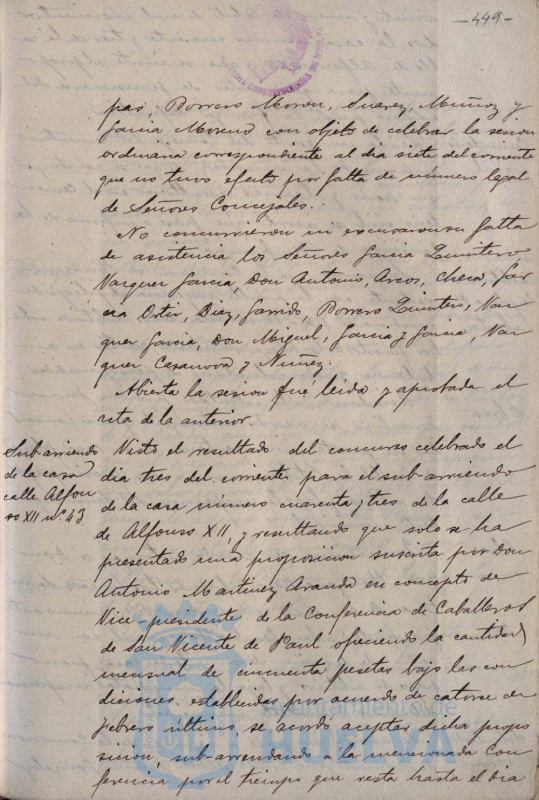 -449-
pas, Borrero Moron, Suarez, Muñoz y
Garcia Moreno con objeto de celebrar la sesion
ordinaria correspondiente al dia siete del corriente
que no tuvo efecto por falta de número legal
de Señores Concejales.
No concurrieron ni excusaron su falta
de asistencia los Señores Garcia Quintero
Vazquez Garcia, Don Antonio, Arcos, Checa, Gar
cia Ortiz, Diaz, Garrido, Borrero Quintero, Vaz
quez Garcia, Don Miguel, Garcia y Garcia, Vaz
quez Casanova y Nuñez.
Abierta la sesion fué leida y aprobada el
acta de la anterior.
Sub-arriendo
de la casa
calle Alfon
so XII nº 43
Visto el resultado del concurso celebrado el
dia tres del corriente para el sub-arriendo
de la casa número cuarenta y tres de la calle
de Alfonso XII, y resultando que solo se ha
presentado una proposicion suscrita por Don
Antonio Martinez Aranda en concepto de
Vice-presidente de la Conferencia de Caballeros
de San Vicente de Paul ofreciendo la cantidad
mensual de cincuenta pesetas bajo las con
diciones establecidas por acuerdo de catorce de
Febrero último, se acordó aceptar dicha propo
sicion, sub-arrendando á la mencionada Con
ferencia por el tiempo que resta hasta el dia
Ayuntamiento de
HUELVA